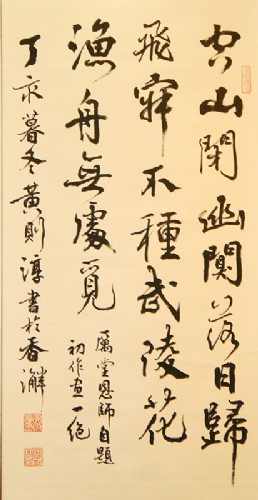 空山閉幽闃落日歸
飛寂不種武陵花
漁舟無處覓
厲堂恩師自題
初作畫一絕
丁亥暮冬黃則淳書於香澥